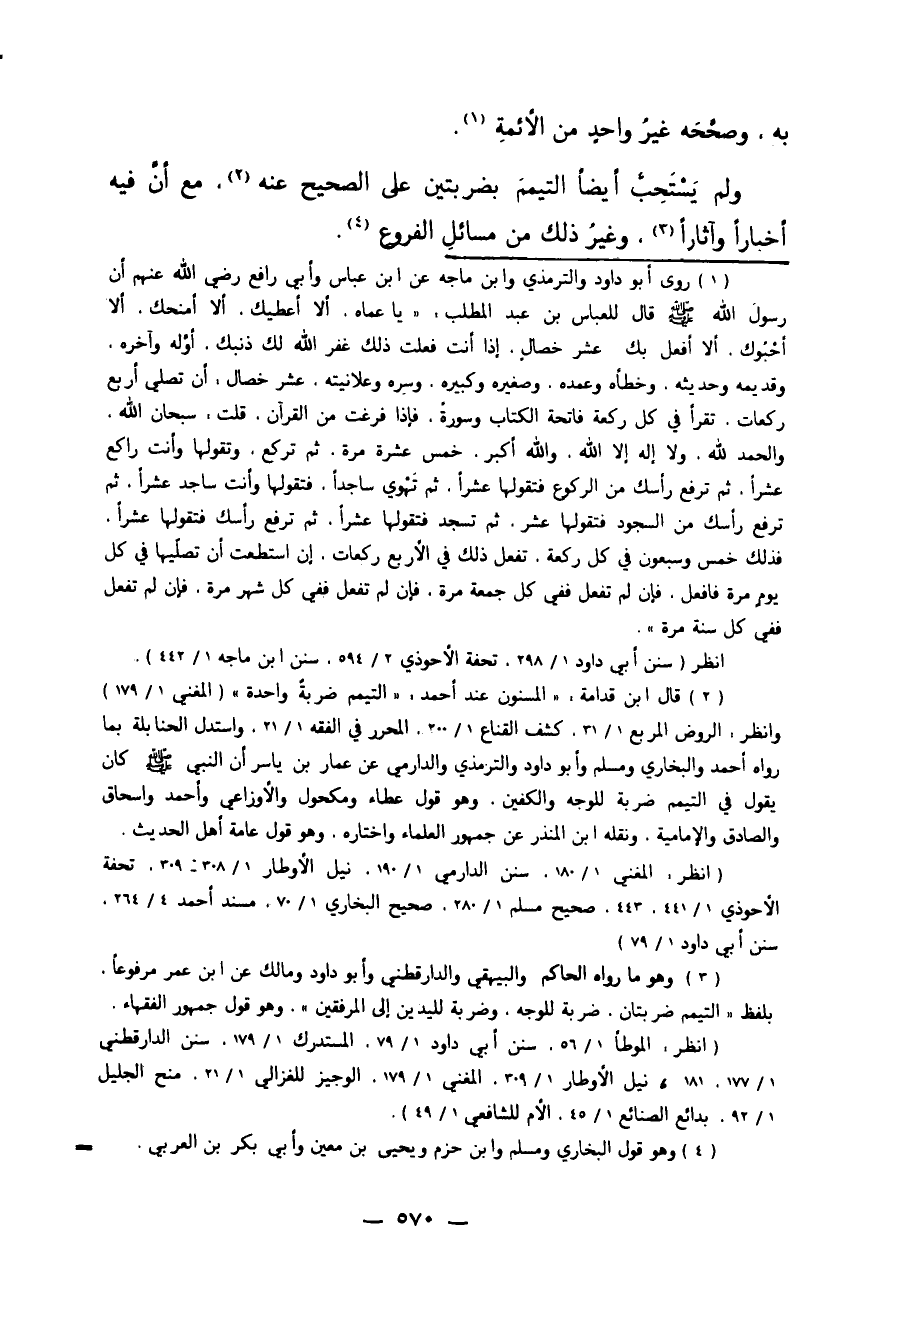 به ، وصحَّحَه غيرُ واحدٍ من الأئمةِ (١) .
ولم يَسْتَحِبَّ أيضاً التيممَ بضربتين على الصحيح عنه (٢) ، مع أنَّ فيه
أخباراً وآثاراً (٣) ، وغيرُ ذلك من مسائلِ الفروع (٤) .
( ١ ) روى أبو داود والترمذي وابن ماجه عن ابن عباس وأبي رافع رضي الله عنهم أن
رسولَ الله ﷺ قال للعباس بن عبد المطلب : « يا عماه ، ألا أعطيك ، ألا أمنحك ، ألا
أحْبُوك ، ألا أفعل بك عشر خصالٍ ، إذا أنت فعلت ذلك غفر الله لك ذنبك ، أوّله وآخره ،
وقديمه وحديثه ، وخطأه وعمده ، وصغيره وكبيره ، وسره وعلانيته ، عشر خصال : أن تصلي أربع
ركعات ، تقرأ في كل ركعة فاتحة الكتاب وسورةً ، فإذا فرغت من القرآن ، قلت : سبحان الله ،
والحمد لله ، ولا إله إلا الله ، والله أكبر ، خمس عشرة مرة ، ثم تركع ، وتقولها وأنت راكع
عشراً ، ثم ترفع رأسك من الركوع فتقولها عشراً ، ثم تَهْوي ساجداً ، فتقولها وأنت ساجد عشراً ، ثم
ترفع رأسك من السجود فتقولها عشر ، ثم تسجد فتقولها عشراً ، ثم ترفع رأسك فتقولها عشراً ،
فذلك خمس وسبعون في كل ركعة ، تفعل ذلك في الأربع ركعات ، إن استطعت أن تصلّيها في كل
يوم مرة فافعل ، فإن لم تفعل ففي كل جمعة مرة ، فإن لم تفعل ففي كل شهر مرة ، فإن لم تفعل
ففي كل سنة مرة » .
انظر ( سنن أبي داود ١ / ٢٩٨ ، تحفة الأحوذي ٢ / ٥٩٤ ، سنن ابن ماجه ١ / ٤٤٢ ) .
( ٢ ) قال ابن قدامة : « المسنون عند أحمد : « التيمم ضربةً واحدة » ( المغني ١ / ١٧٩ )
وانظر : الروض المربع ١ / ٣١ ، كشف القناع ١ / ٢٠٠ ، المحرر في الفقه ١ / ٢١ ، واستدل الحنابلة بما
رواه أحمد والبخاري ومسلم وأبو داود والترمذي والدارمي عن عمار بن ياسر أن النبي ﷺ كان
يقول في التيمم ضربة للوجه والكفين ، وهو قول عطاء ومكحول والأوزاعي وأحمد واسحاق
والصادق والإمامية ، ونقله ابن المنذر عن جمهور العلماء واختاره ، وهو قول عامة أهل الحديث .
( انظر : المغني ١ / ١٨٠ ، سنن الدارمي ١ / ١٩٠ ، نيل الأوطار ١ / ٣٠٨ - ٣٠٩ ، تحفة
الأحوذي ١ / ٤٤١ ، ٤٤٣ ، صحيح مسلم ١ / ٢٨٠ ، صحيح البخاري ١ / ٧٠ ، مسند أحمد ٤ / ٢٦٤ ،
سنن أبي داود ١ / ٧٩ )
( ٣ ) وهو ما رواه الحاكم والبيهقي والدارقطني وأبو داود ومالك عن ابن عمر مرفوعاً ،
بلفظ « التيمم ضربتان ، ضربة للوجه ، وضربة لليدين إلى المرفقين » ، وهو قول جمهور الفقهاء .
( انظر : الموطأ ١ / ٥٦ ، سنن أبي داود ١ / ٧٩ ، المستدرك ١ / ١٧٩ ، سنن الدارقطني
١ / ١٧٧ ، ١٨١ ، نيل الأوطار ١ / ٣٠٩ ، المغني ١ / ١٧٩ ، الوجيز للغزالي ١ / ٢١ ، منح الجليل
١ / ٩٢ ، بدائع الصنائع ١ / ٤٥ ، الأم للشافعي ١ / ٤٩ ) .
( ٤ ) وهو قول البخاري ومسلم وابن حزم ويحيى بن معين وأبي بكر بن العربي . =
— ٥٧٠ —